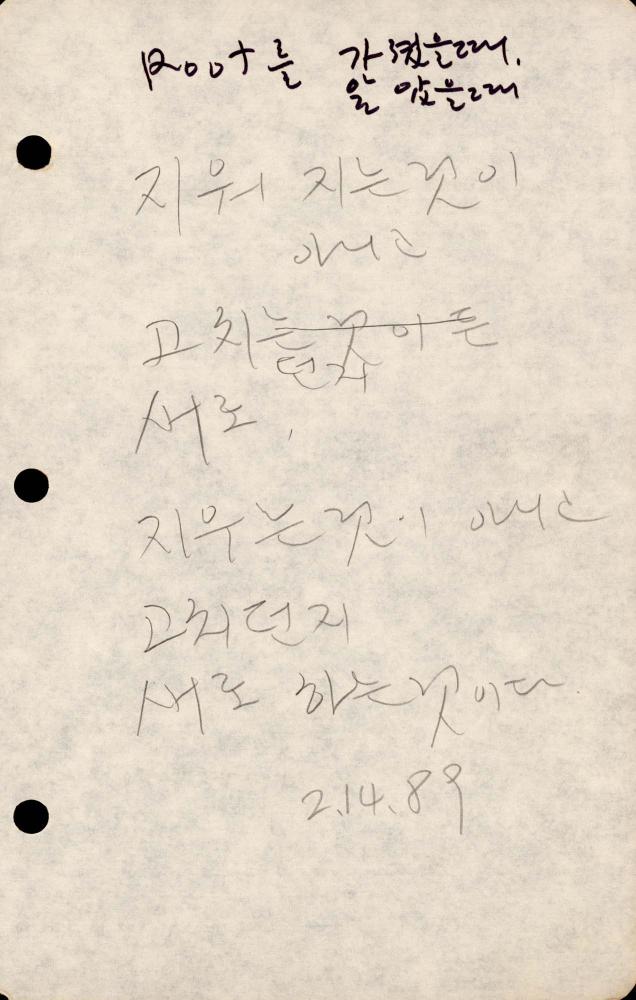 Root를 가졌을때,
알 았을때
지워 지는것이
아니고
고치는것이든
던지
새로,
지우는것이 아니고
고치던지
새로 하는것이다.
2.14.89